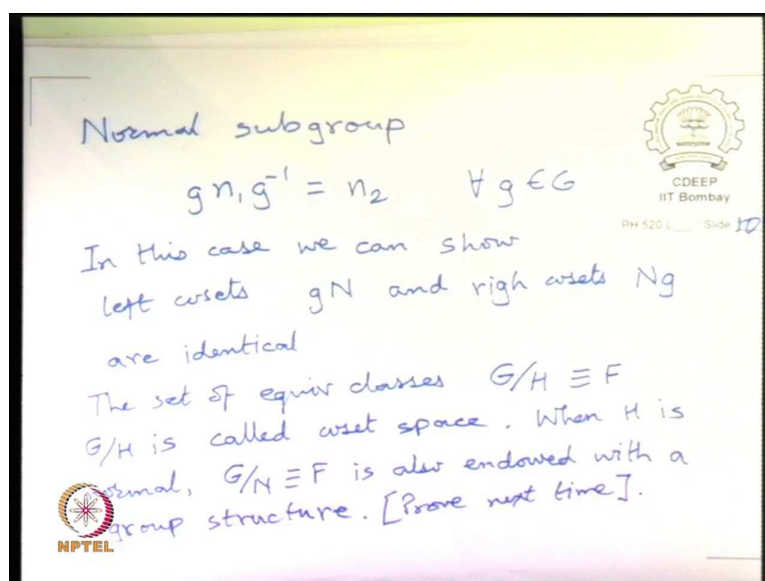 Normal subgroup
g n₁ g⁻¹ = n₂ ∀ g ∈ G
CDEEP
IIT Bombay
PH 520 L___ / Slide 10
In this case we can show
left cosets gN and righ cosets Ng
are identical
The set of equiv classes G/H ≡ F
G/H is called coset space. When H is
normal, G/N ≡ F is also endowed with a
group structure. [Prove next time].
NPTEL